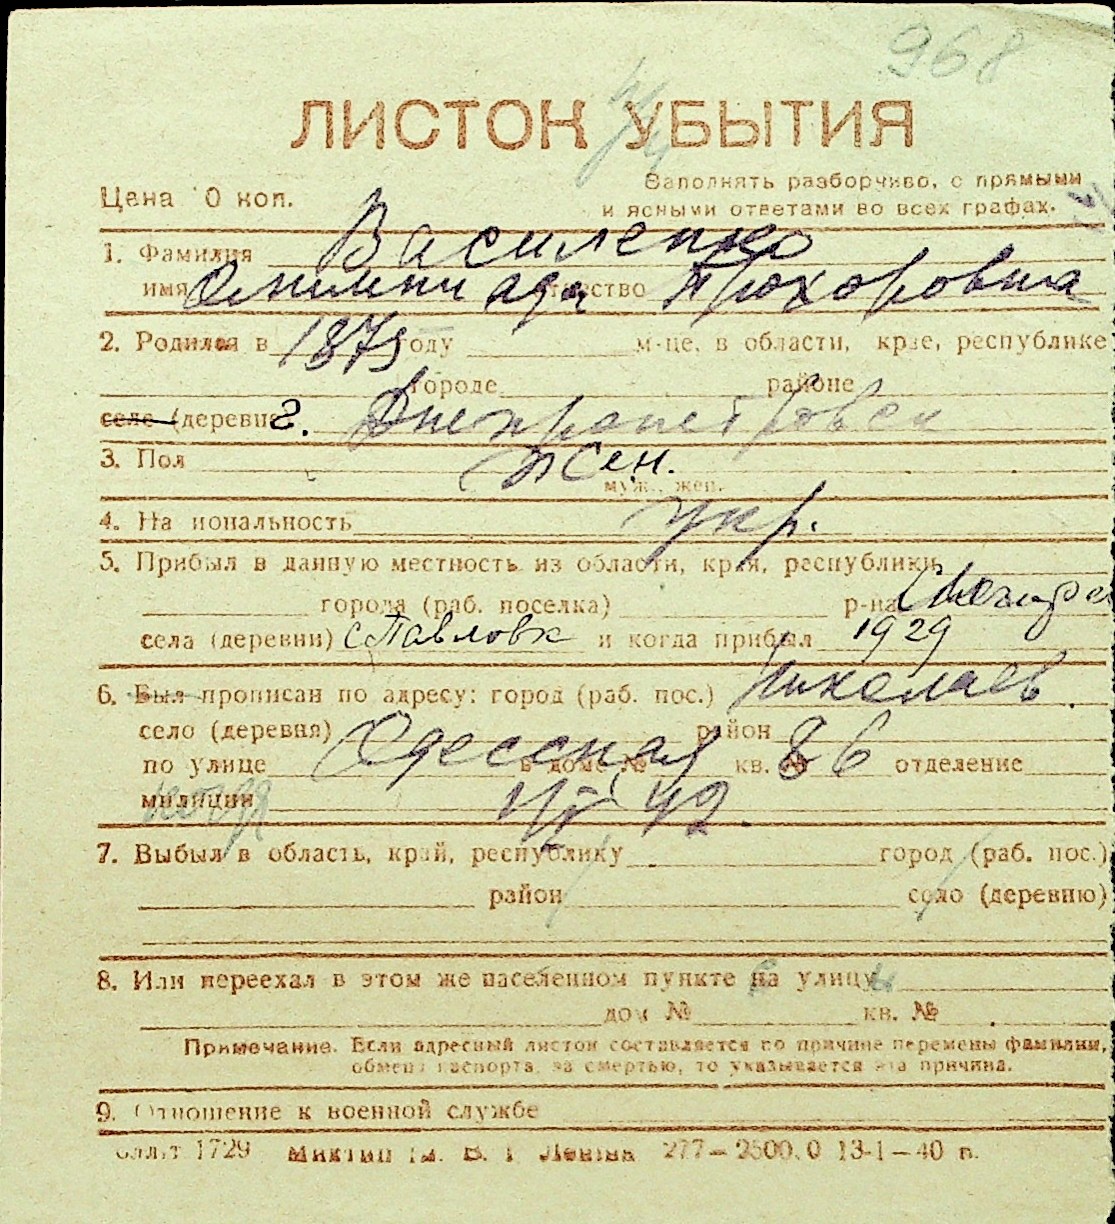 968
ЛИСТОК УБЫТИЯ
Цена 0 коп.
Заполнять разборчиво, с прямыми
и ясными ответами во всех графах.
1. Фамилия Василенко
имя Олимпиада отчество Прохоровна
2. Родился в 1875 году м-це, в области, крае, республике
городе районе
селе (деревне г. Днепропетровск
3. Пол жен.
муж., жен.
4. Национальность укр.
5. Прибыл в данную местность из области, края, республики
города (раб. поселка) р-на
села (деревни) с Павловк и когда прибыл 1929
6. Был прописан по адресу: город (раб. пос.) Николаев
село (деревня) район
по улице Одесская в доме № кв. № 86 отделение
милиции 42.
7. Выбыл в область, край, республику город (раб. пос.)
район село (деревню)
8. Или переехал в этом же населенном пункте на улицу
дом № кв. №
Примечание. Если адресный листок составляется по причине перемены фамилии,
обмена паспорта, за смертью, то указывается эта причина.
9. Отношение к военной службе
1729 В. Ленина 277—2500.0 13-1—40 п.